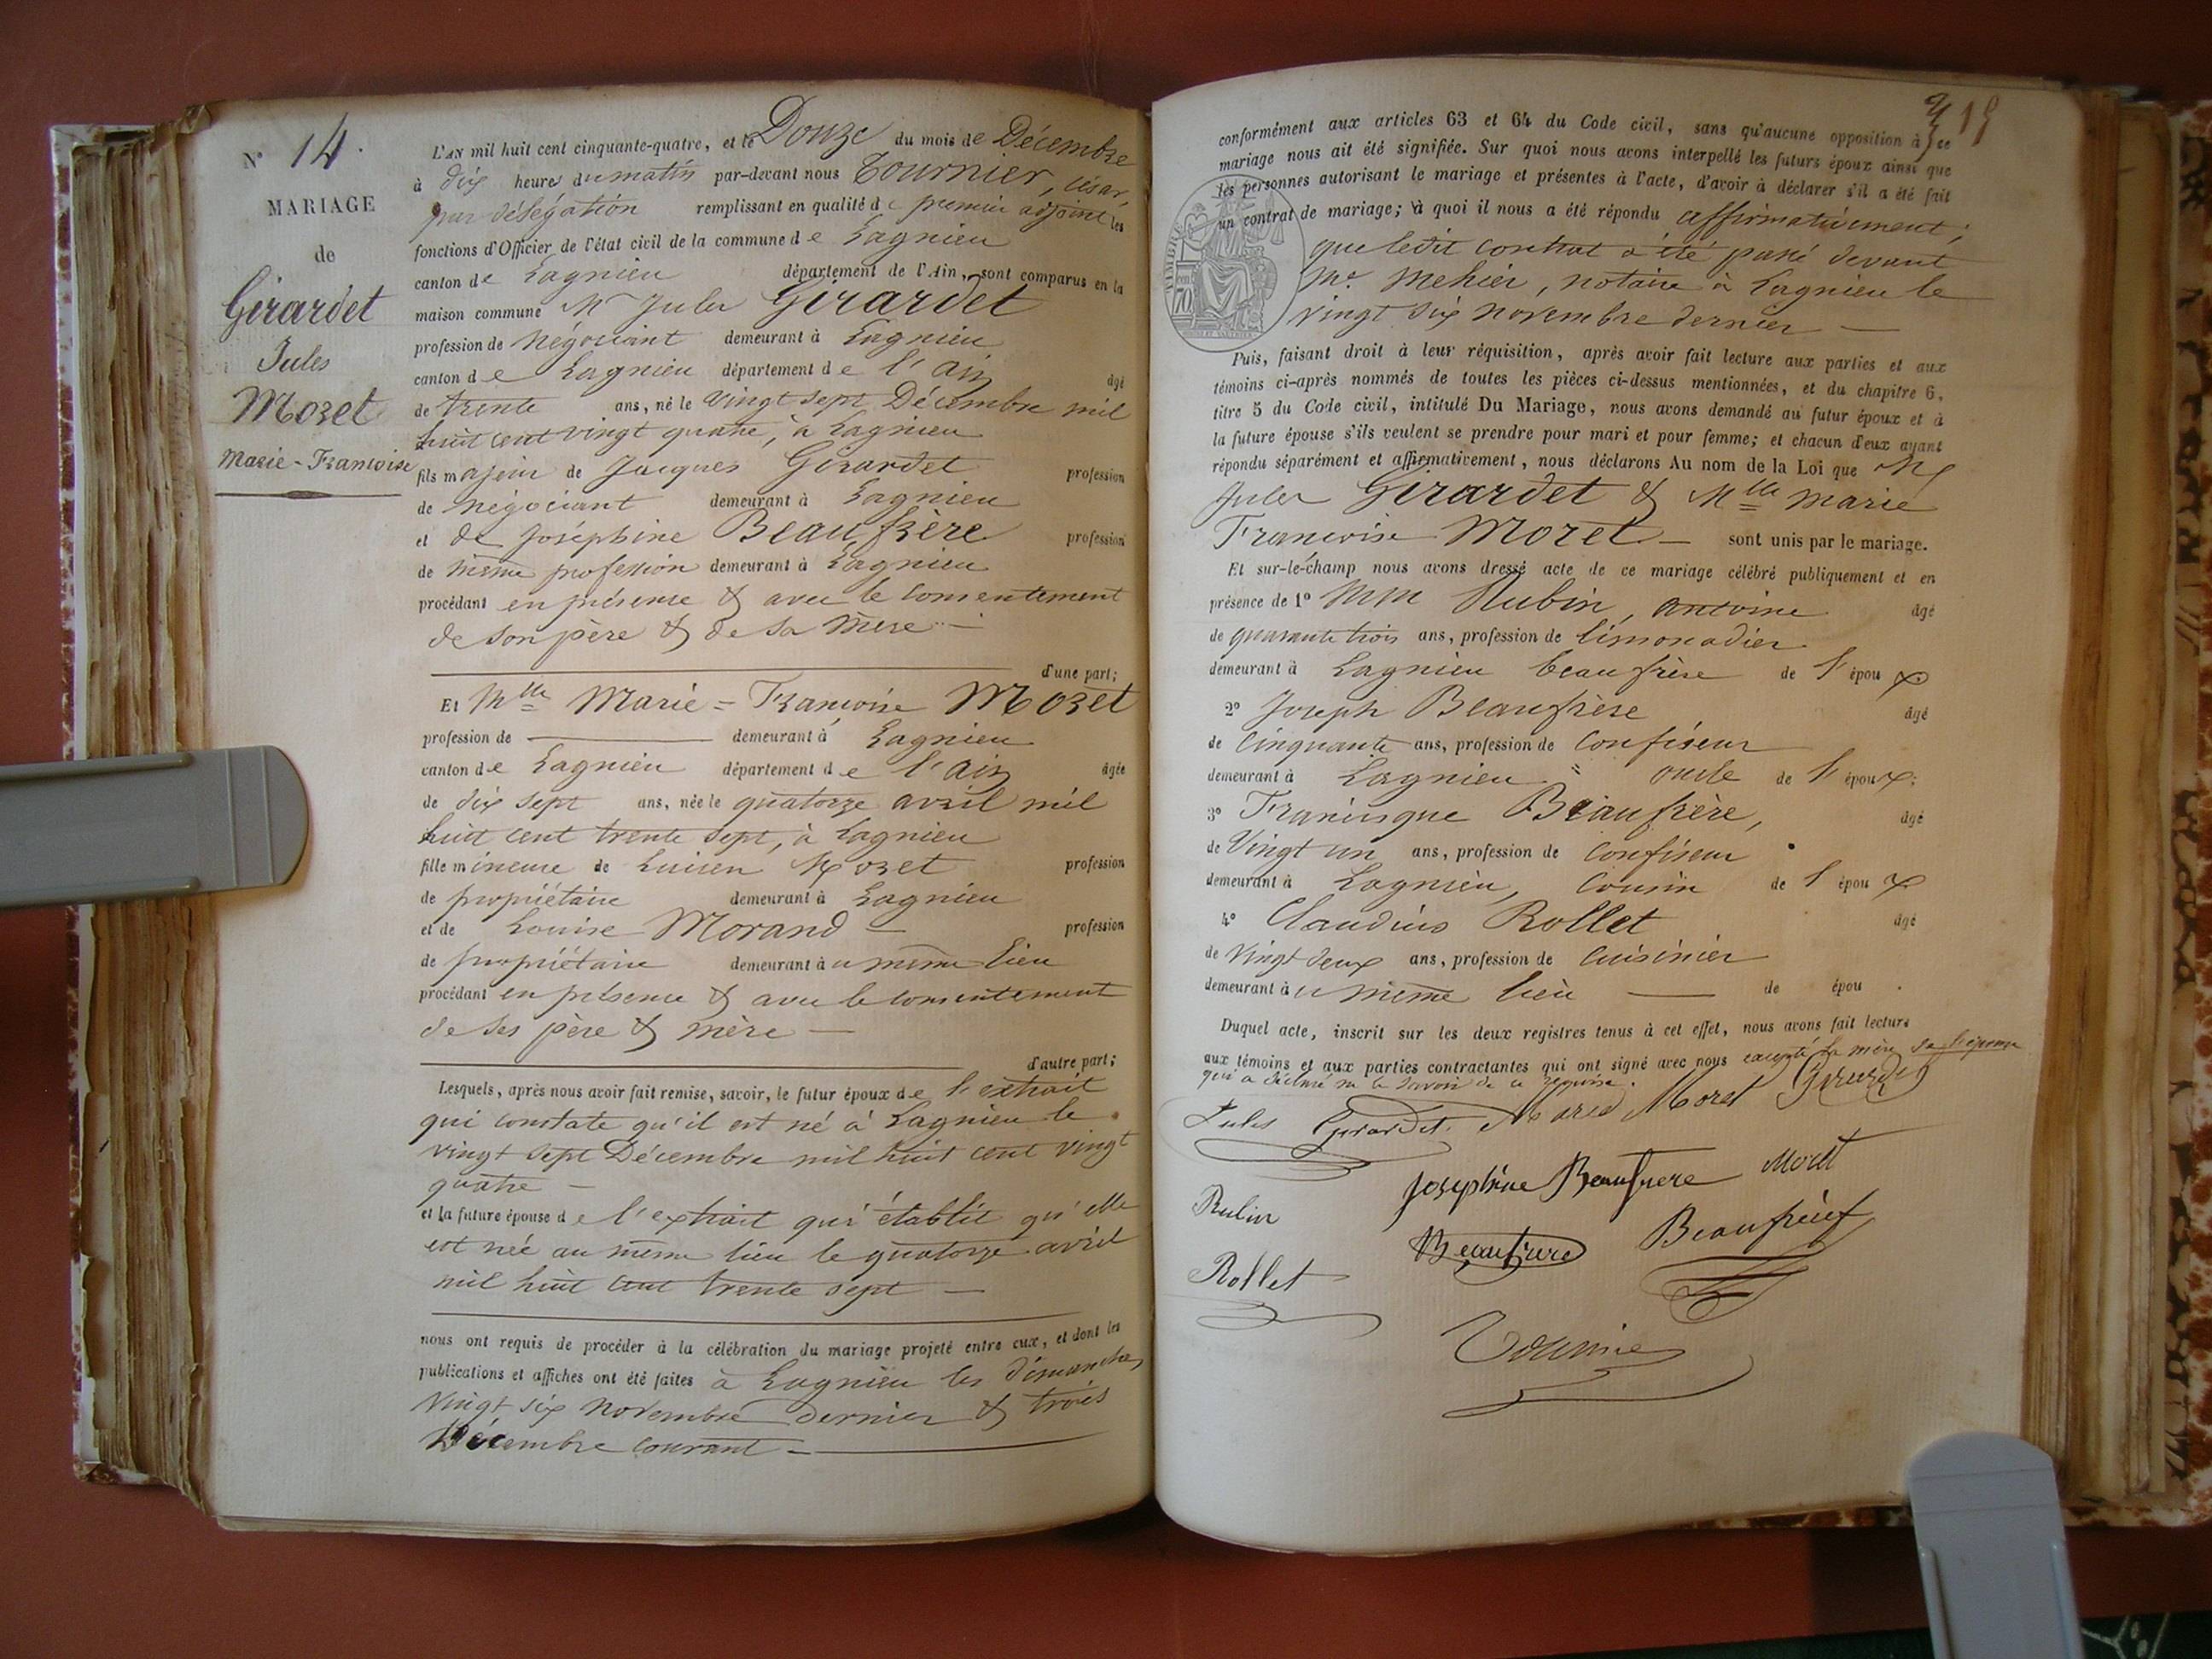 N° 14.
MARIAGE
de
Girardet
Jules
Moret
Marie-Francoise
L'AN mil huit cent cinquante-quatre, et le Douze du mois de Décembre
à dix heures du matin par-devant nous Tournier, César,
par délégation remplissant en qualité de premier adjoint les
fonctions d'Officier de l'état civil de la commune de Lagnieu
canton de Lagnieu département de l'Ain, sont comparus en la
maison commune Mr Jules Girardet
profession de Négociant demeurant à Lagnieu
canton de Lagnieu département de l'Ain âgé
de trente ans, né le vingt sept Décembre mil
huit cent vingt quatre, à Lagnieu
fils majeur de Jacques Girardet profession
de négociant demeurant à Lagnieu
et de Joséphine Beaufrère profession
de même profession demeurant à Lagnieu
procédant en présence & avec le consentement
de son père & de sa mère —
d'une part;
Et Mlle Marie=Françoise Moret
profession de — demeurant à Lagnieu
canton de Lagnieu département de l'Ain âgée
de dix sept ans, née le quatorze avril mil
huit cent trente sept, à Lagnieu
fille mineure de Lucien Moret profession
de propriétaire demeurant à Lagnieu
et de Louise Morand — profession
de propriétaire demeurant au même lieu
procédant en présence & avec le consentement
de ses père & mère —
d'autre part;
Lesquels, après nous avoir fait remise, savoir, le futur époux de l'extrait
qui constate qu'il est né à Lagnieu le
vingt sept Décembre mil huit cent vingt
quatre —
et la future épouse de l'extrait qui établit qu'elle
est née au même lieu le quatorze avril
mil huit cent trente sept —
nous ont requis de procéder à la célébration du mariage projeté entre eux, et dont les
publications et affiches ont été faites à Lagnieu les dimanches
vingt six novembre dernier & trois
Décembre courant —
19
conformément aux articles 63 et 64 du Code civil, sans qu'aucune opposition à ce
mariage nous ait été signifiée. Sur quoi nous avons interpellé les futurs époux ainsi que
les personnes autorisant le mariage et présentes à l'acte, d'avoir à déclarer s'il a été fait
un contrat de mariage; à quoi il nous a été répondu affirmativement;
que ledit contrat a été passé devant
Me. Mehier, notaire à Lagnieu le
vingt six novembre dernier —
TIMBRE
70
Puis, faisant droit à leur réquisition, après avoir fait lecture aux parties et aux
témoins ci-après nommés de toutes les pièces ci-dessus mentionnées, et du chapitre 6,
titre 5 du Code civil, intitulé Du Mariage, nous avons demandé au futur époux et à
la future épouse s'ils veulent se prendre pour mari et pour femme; et chacun d'eux ayant
répondu séparément et affirmativement, nous déclarons Au nom de la Loi que Mr
Jules Girardet & Mlle Marie
Françoise Moret — sont unis par le mariage.
Et sur-le-champ nous avons dressé acte de ce mariage célébré publiquement et en
présence de 1° MM Rubin, Antoine âgé
de quarante trois ans, profession de limonadier
demeurant à Lagnieu beaufrère de l'époux
2° Joseph Beaufrère âgé
de cinquante ans, profession de confiseur
demeurant à Lagnieu oncle de l'époux;
3° Francisque Beaufrère, âgé
de Vingt un ans, profession de confiseur
demeurant à Lagnieu, cousin de l'époux
4° Claudius Rollet âgé
de vingt deux ans, profession de cuisinier
demeurant au même lieu — de épou .
Duquel acte, inscrit sur les deux registres tenus à cet effet, nous avons fait lecture
aux témoins et aux parties contractantes qui ont signé avec nous excepté la mère de l'épouse
qui a déclaré ne le savoir de ce requise.
Jules Girardet. Marie Moret Girardet
Joséphine Beaufrere Moret
Rubin Beaufrere Beaufrère
Rollet
Tournier